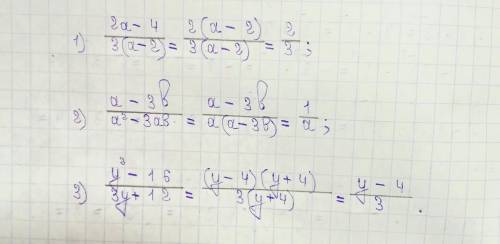 1) (2a - 4)/(3(a - 2)) = (2(a - 2))/(3(a - 2)) = 2/3;
2) (a - 3b)/(a² - 3ab) = (a - 3b)/(a(a - 3b)) = 1/a;
3) (y² - 16)/(3y + 12) = ((y - 4)(y + 4))/(3(y + 4)) = (y - 4)/3.